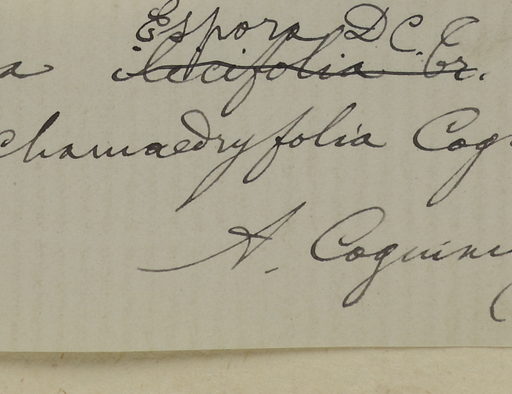 Espora DC.
a ilicifolia Tr.
chamaedryfolia Cog
A. Cogniau